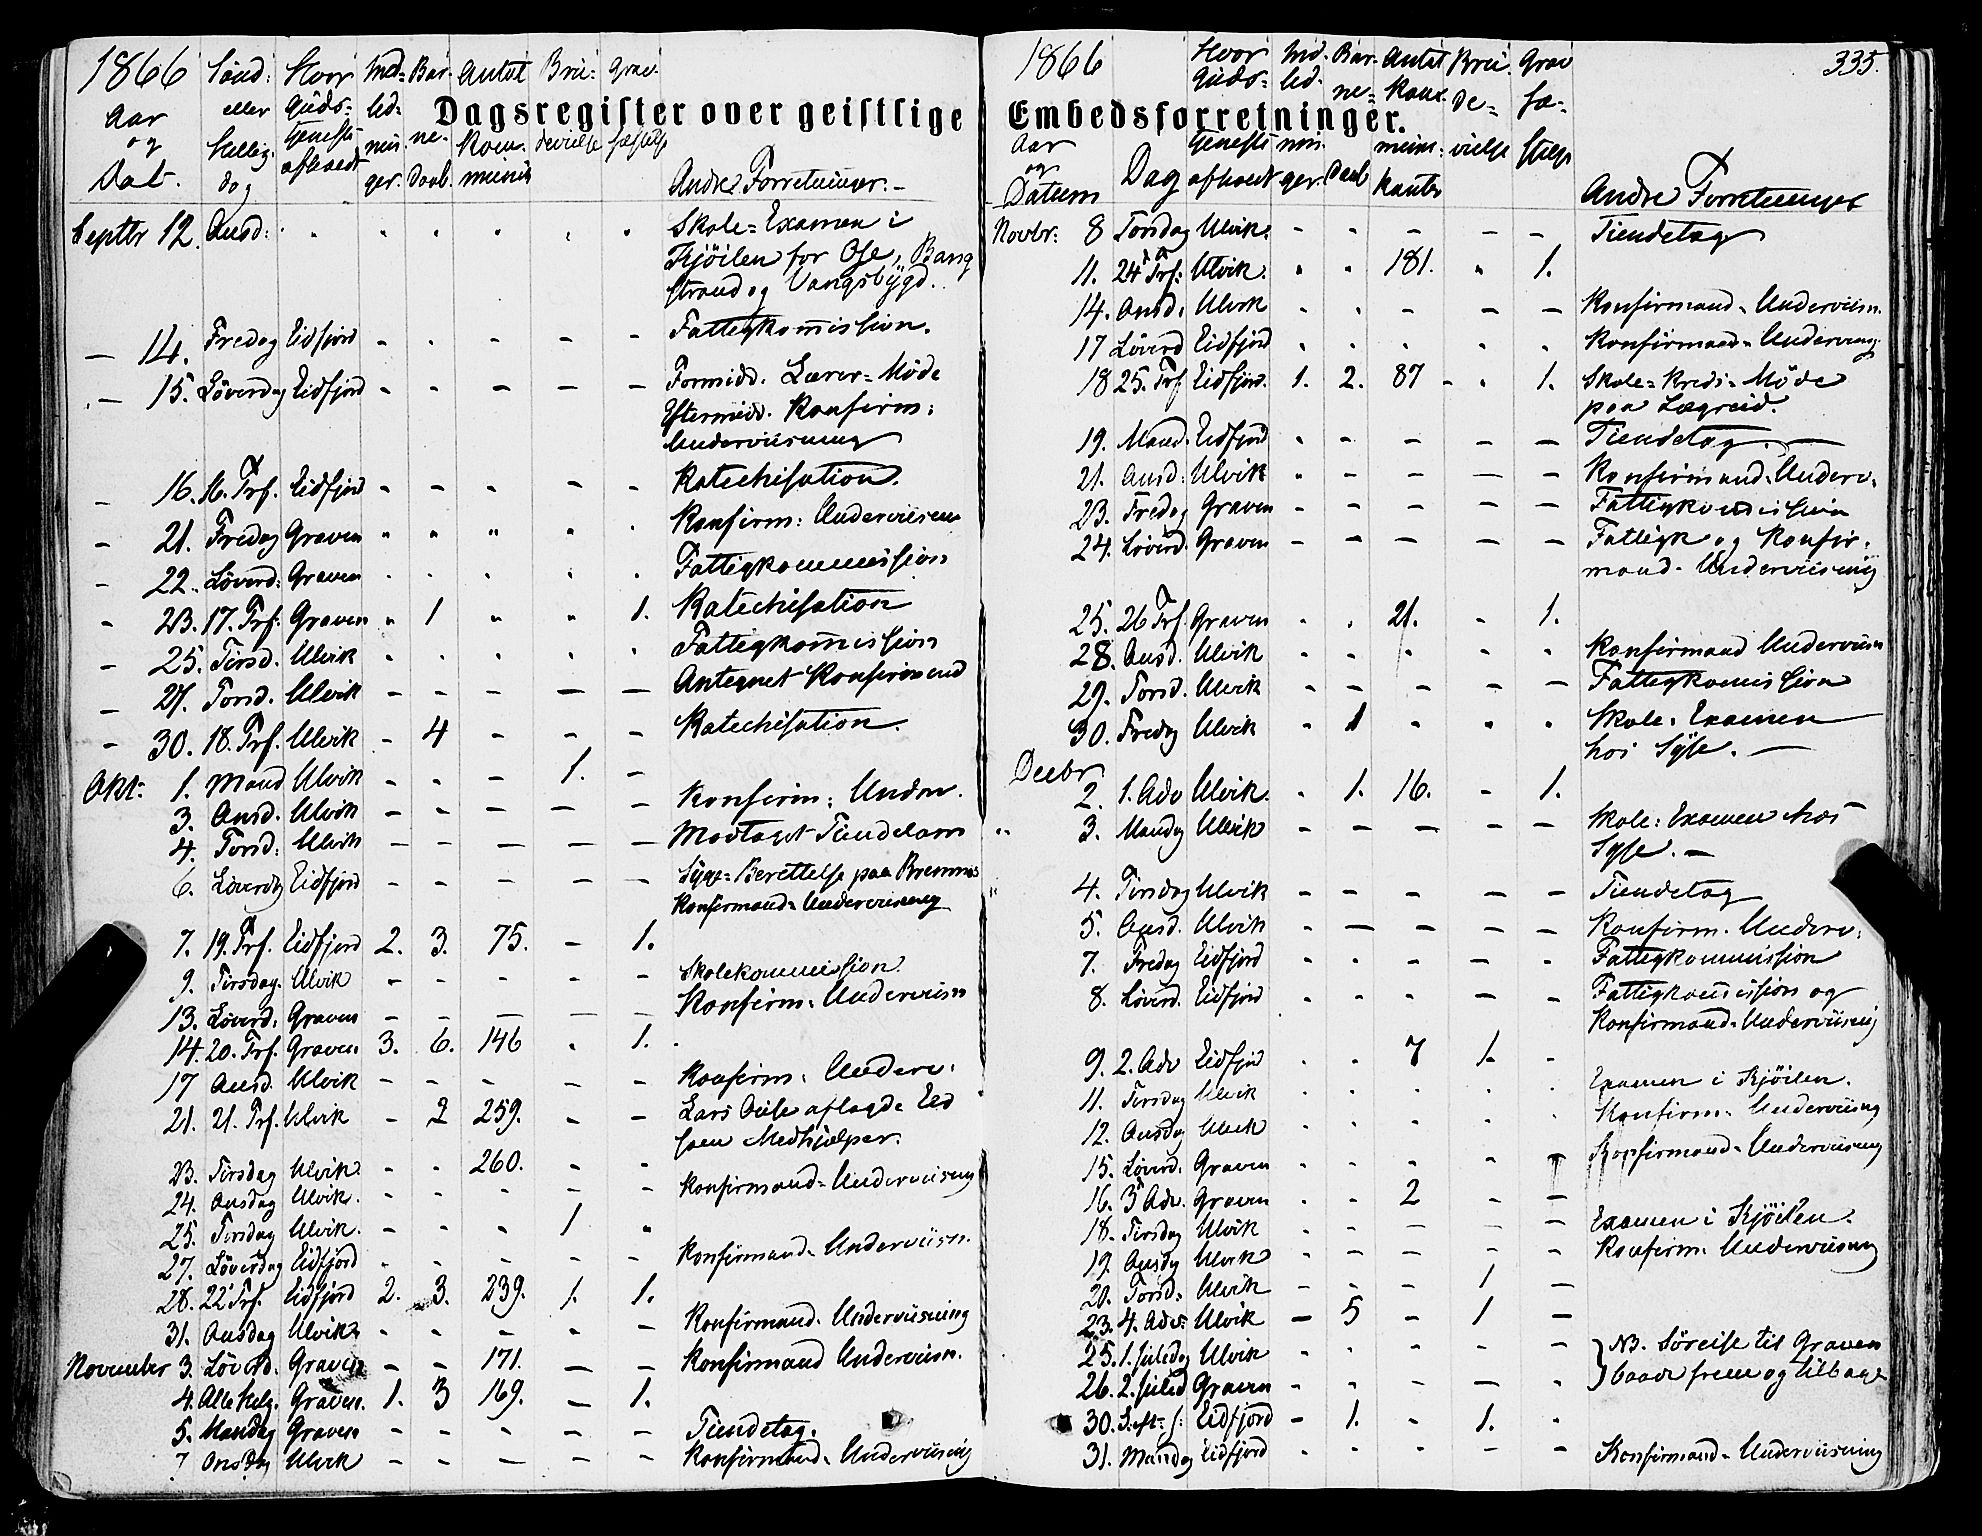 1866
Aar
og
Dat.
Sønd:
eller
Hellig.
dag
Hvor
Guds-
tjeneste
afholdt
Ind-
led-
nin-
ger.
Bar-
ne-
Daab.
Antal
Kom-
munic
Bru-
devielse
Grav-
fæstelse
Dagsregister over geistlige
Andre Forretninger.-
Septbr 12. Onsd: Skole-Examen i
Kjøilen for Ose, Bang
strand og Vangsbygd.
— 14. Fredag Eidfjord - - - - - Fattigkommission.
— 15. Løverdag Eidfjord - - - - - Formidd. Lærer-Møde
Eftermidd. Konfirm:
Underviisning
— 16. 16. Trf. Eidfjord - - - - - Katechisation.
— 21. Fredag Graven - - - - - Konfirm: Underviisn
— 22. Løverd: Graven - - - - - Fattigkommission
— 23. 17. Trf: Graven - 1 - - 1. Katechisation
— 25. Tirsd. Ulvik - - - - - Fattigkommission
— 27. Torsd. Ulvik - - - - - Antegnet Konfirmand
— 30. 18. Trf. Ulvik - 4 - - - Katechisation.
Okt: 1. Mand Ulvik - - - 1. -
3. Onsd. Ulvik - - - - - Konfirm: Underv.
4. Torsd: Ulvik - - - - - Modtaget Tiendekorn
6. Løverdag Eidfjord - - - - - Syge-Berettelse paa Bremnes
Konfirmand-Underviisning
7. 19. Trf. Eidfjord 2. 3. 75. - 1.
9. Tirsdag. Ulvik - - - - - Skolekommission.
13. Løverd. Graven - - - - - Konfirm: Underviisn
14. 20. Trf. Graven. 3. 6. 146 - 1.
17 Onsd. Ulvik - - - - - Konfirm: Underv:
21. 21. Trf. Ulvik - 2 259. - - Lars aflagde Eed
som Medhjælper.
23. Tirsdag Ulvik - - 260. - -
24. Onsdag Ulvik. - - - - - Konfirmand-Underviisning
25. Torsdag Ulvik. - - - 1 -
27. Løverdag Eidfjord - - - - - Konfirmand-Underviisn.
28. 22 Trf. Eidfjord 2. 3. 239. 1. 1.
31. Onsdag Ulvik - - - - - Konfirmand-Underviisning
November 3. Løverd. Graven - - 171. - - Konfirmand Underviisn.
4. Alle Helg. Graven. 1. 3 169. - 1.
5. Mandag Graven - - - - - Tiendetag.
7 Onsdag Ulvik - - - - - Konfirmand-Underviisning
1866
335.
Aar
og
Datum
Dag
Hvor
Guds-
tjeneste
afholdt
Ind-
led-
nin-
ger.
Bar-
ne-
Daab
Antal
Kom-
muni-
kanter
Bru-
de-
vielse
Grav
fæ-
stelse
Embedsforretninger.
Andre Forretninger
Novbr: 8 Torsdag Ulvik. - - - - - Tiendetag
11. 24 Trf: Ulvik. - - 181. - 1.
14. Onsd. Ulvik - - - - - Konfirmand-Underviisn.
17 Løverd Eidfjord - - - - - Konfirmand-Undervisng
18 25. Trf Eidfjord. 1. 2. 87 - 1. Skole-Kreds-Møde
paa Lægreid.
19. Mand. Eidfjord - - - - - Tiendetag. —
21. Onsd: Ulvik - - - - - Konfirmand-Underv.
23. Fredag Graven - - - - - Fattigkommission
24. Løverd. Graven - - - - - Fattigk og Konfir-
mand-Underviisning
25. 26 Trf. Graven - - 21. - 1.
28. Onsd. Ulvik - - - - - Konfirmand Underviisn
29. Torsd. Ulvik - - - - - Fattigkommission
30. Fredag Ulvik - 1 - - - Skole-Examen
hos Syse. —
Decbr
2. 1. Adv Ulvik. - 1. 16. - 1.
" 3. Mandag Ulvik - - - - - Skole-Examen hos
Syse. —
" 4. Tirsdag Ulvik - - - - - Tiendetag
5. Onsd. Ulvik - - - - - Konfirm. Underv:
7. Fredag Eidfjord - - - - - Fattigkommission
8. Løverd. Eidfjord - - - - - Fattigkommission og
Konfirmand-Underviisning
9. 2. Adv Eidfjord - - 7 1. -
11. Tirsdag Ulvik - - - - - Examen i Kjøilen.
12. Onsdag Ulvik - - - - - Konfirm. Underviisning
15. Løverd. Graven - - - - - Konfirmand-Underviisning
16. 3 Adv. Graven - - 2 - -
18. Tirsdag Ulvik - - - - - Examen i Kjøilen.
19. Onsdag Ulvik - - - - - Konfirm. Underviisning
20. Torsd. Ulvik - - - 1 -
23. 4. Adv. Ulvik - 5 - 1 -
25. 1. Juledag Ulvik - - - - - } NB. Søreise til Graven
26. 2. Juled Graven - - - - - baade frem og tilbage
30. S. eft: J: Eidfjord - 1. - 1. -
31. Mandag Eidfjord - - - - - Konfirmand-Underviisning